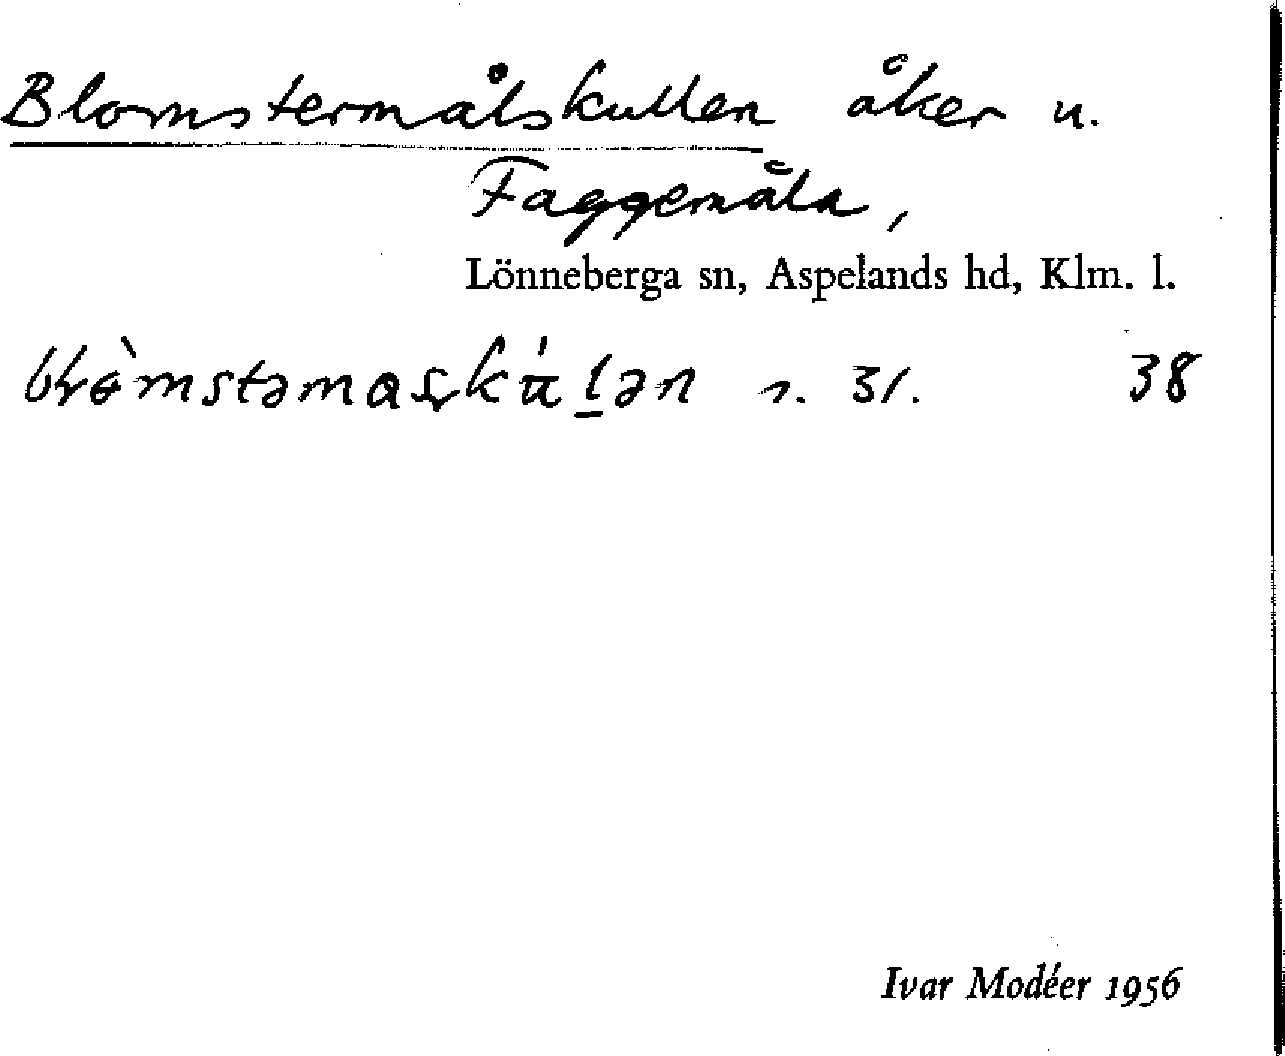 Blomstermålskullen åker u.
Faggemåla,
Lönneberga sn, Aspelands hd, Klm. l.
31. 38
Ivar Modéer 1956